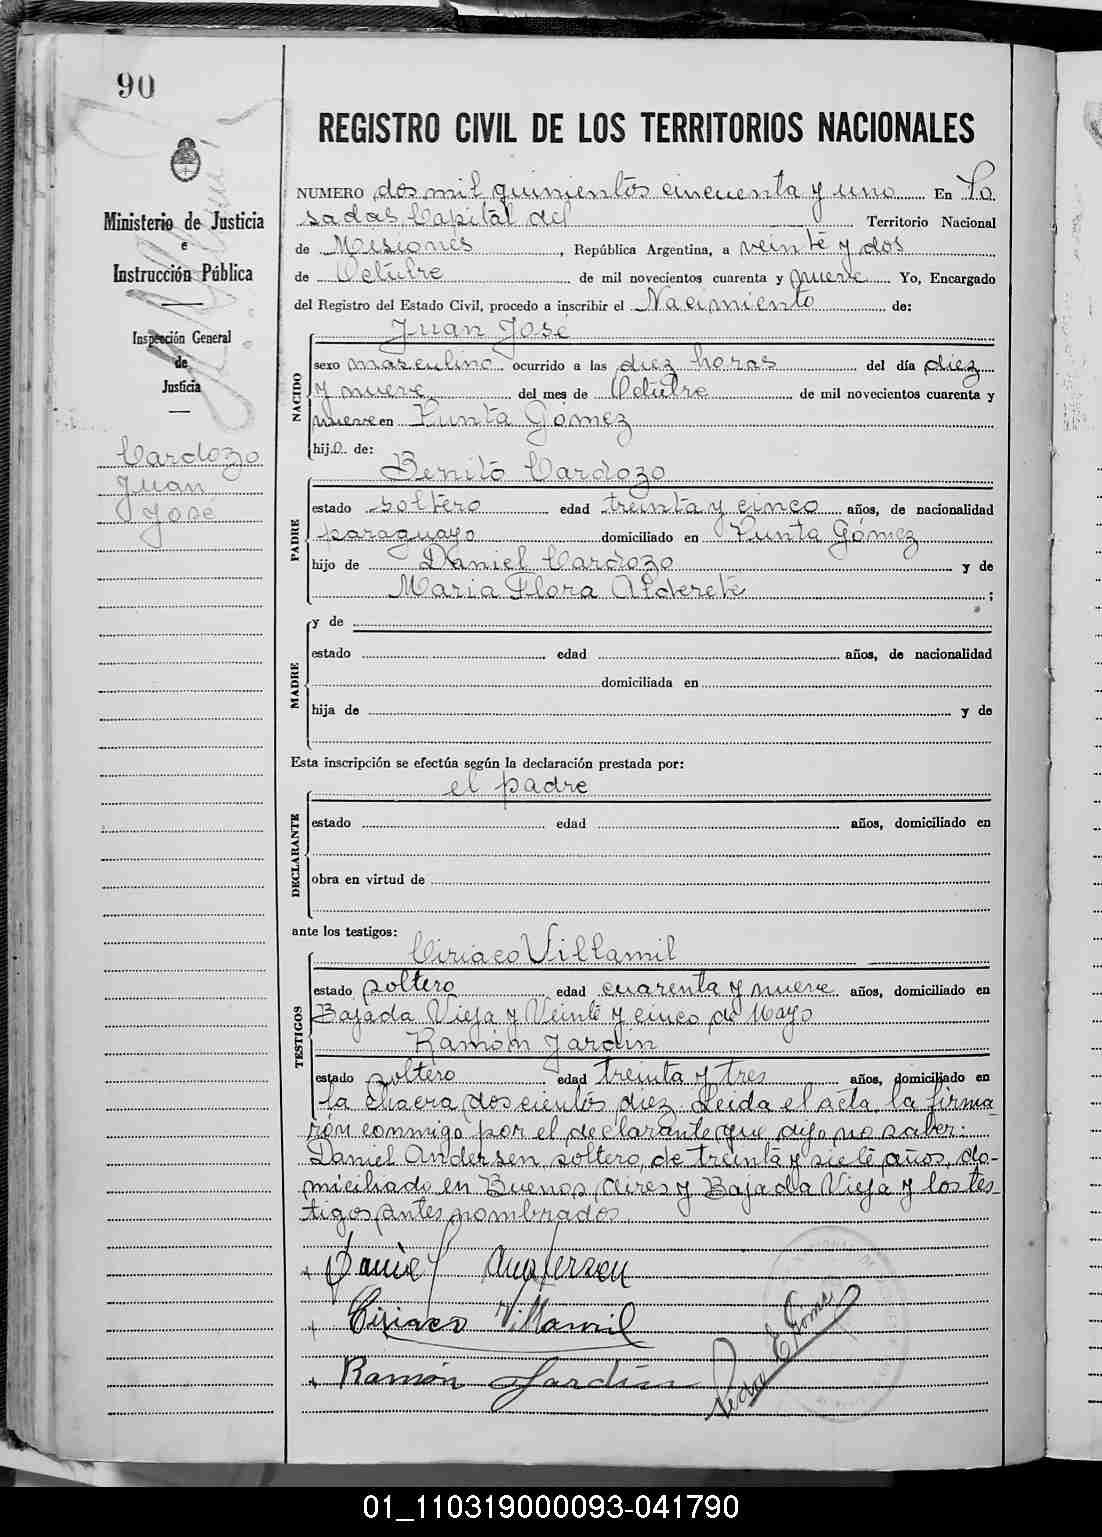 90
Ministerio de Justicia
e
Instrucción Pública
Inspección General
de
Justicia
Cardozo
Juan
José
REGISTRO CIVIL DE LOS TERRITORIOS NACIONALES
NUMERO dos mil quinientos cincuenta y uno En Po
sadas, Capital del Territorio Nacional
de Misiones, República Argentina, a veinte y dos
de Octubre de mil novecientos cuarenta y nueve Yo, Encargado
del Registro del Estado Civil, procedo a inscribir el Nacimiento de:
NACIDO
Juan José
sexo masculino ocurrido a las diez horas del día diez
y nueve del mes de Octubre de mil novecientos cuarenta y
nueve en Punta Gómez
hijo de:
PADRE
Benito Cardozo
estado soltero edad treinta y cinco años, de nacionalidad
paraguayo domiciliado en Punta Gómez
hijo de Daniel Cardozo y de
Maria Flora Alderete ;
MADRE
y de
estado edad años, de nacionalidad
domiciliada en
hija de y de
Esta inscripción se efectúa según la declaración prestada por:
el padre
DECLARANTE
estado edad años, domiciliado en
obra en virtud de
ante los testigos:
TESTIGOS
Ciriaco Villamil
estado soltero edad cuarenta y nueve años, domiciliado en
Bajada Vieja y Veinte y cinco de Mayo
Ramón Jardin
estado soltero edad treinta y tres años, domiciliado en
la chacra doscientos diez. Leida el acta, la firma
rón conmigo por el declarante que dijo no saber:
Daniel Andersen, soltero, de treinta y siete años, do-
miciliado en Buenos Aires y Bajada Vieja y los tes
tigos antes nombrados.
Daniel Andersen
Ciriaco Villamil
Ramón Jardin
Pedro E.
01_110319000093-041790